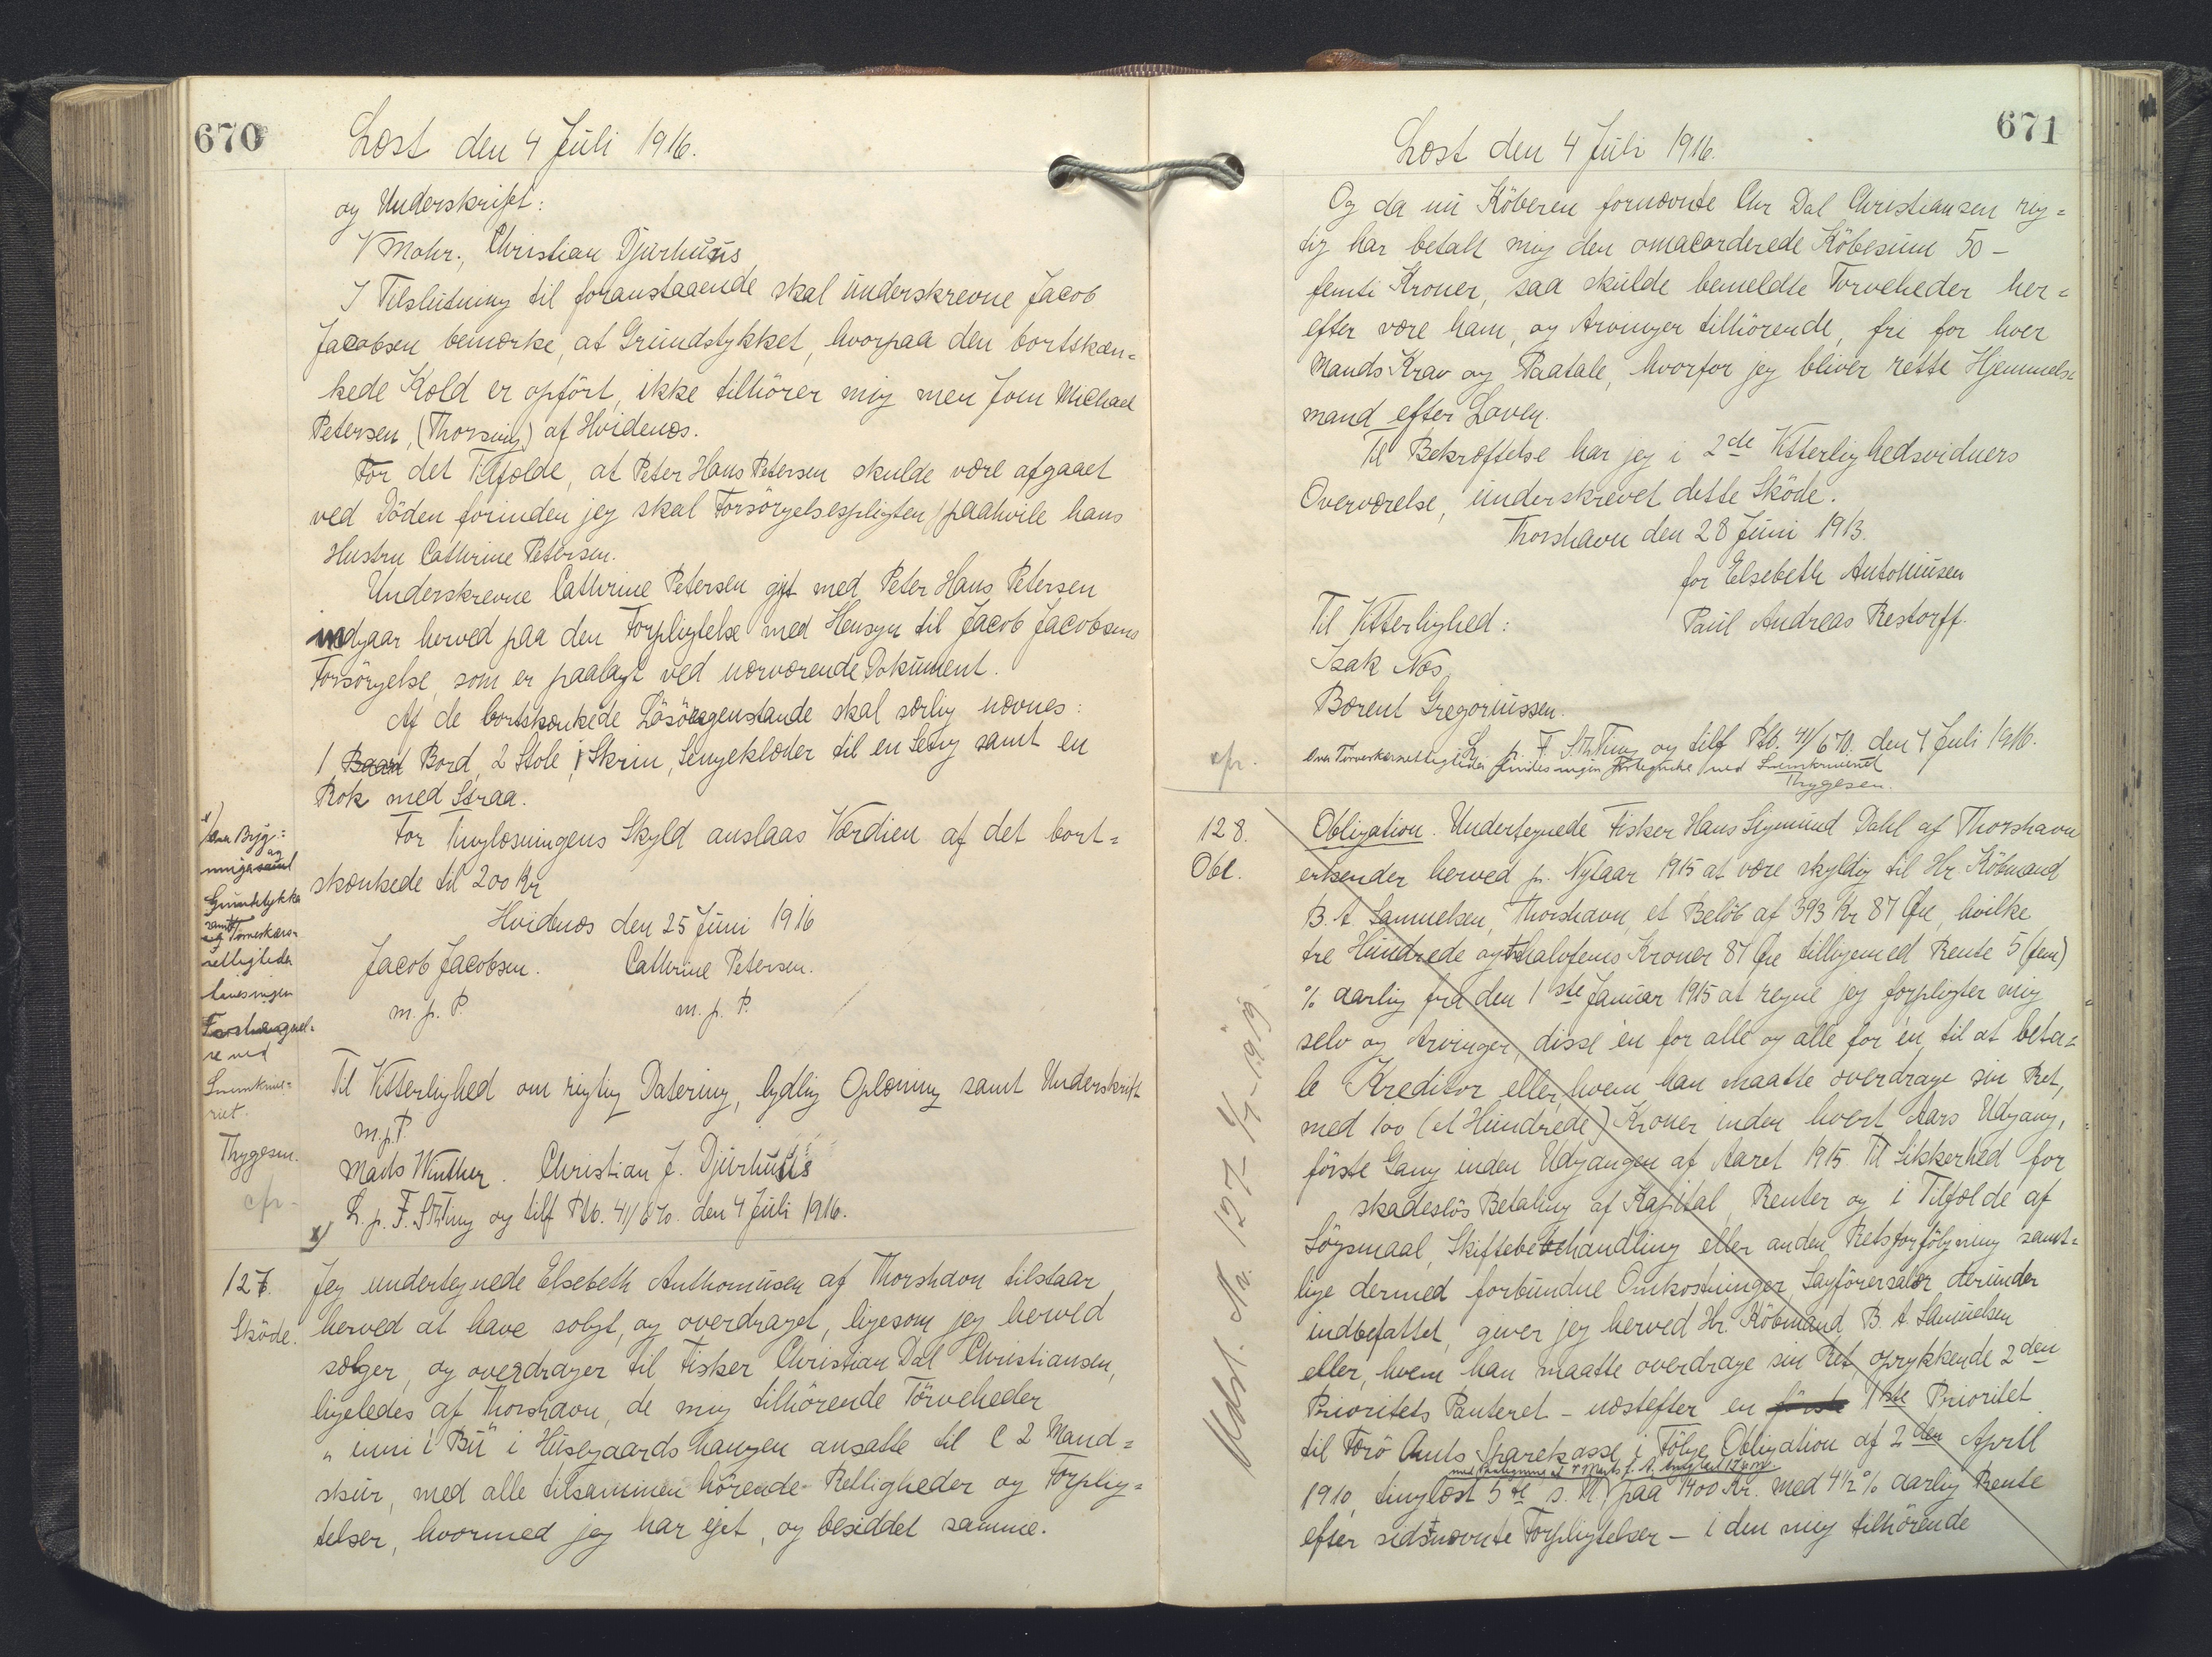 670
Læst den 4 Juli 1916.
og Underskrift:
V Mohr., Christian Djurhuus
I Tilslutning til foranstaaende skal underskrevne Jacob
Jacobsen bemærke, at Grundstykket, hvorpaa den bortskæn=
kede Kold er opført, ikke tilhører mig men Joen Michael
Petersen, (Thorsvig) af Hvidenæs.
For det Tilfælde, at Peter Hans Petersen skulde være afgaaet
ved Döden forinden jeg skal Forsörgelsespligten paahvile hans
Hustru Cathrine Petersen.
Underskrevne Cathrine Petersen gift med Peter Hans Petersen
indgaar herved paa den Forpligtelse med Hensyn til Jacob Jacobsens
Forsörgelse, som er paalagt ved nærværende Dokument.
Af de bortskænkede Lösöregenstande skal særlig nævnes:
1 Baard Bord, 2 Stole, 1 Skrin, Sengeklæder til en Seng samt en
Rok med Straa.
For Tinglæsningens Skyld anslaas Værdien af det bort=
skænkede til 200 Kr
Hvidenæs den 25 Juni 1916
Jacob Jacobsen. Cathrine Petersen.
m. p. P. m. p. P.
Til Vitterlighed om rigtig Datering, lydlig Oplæsning samt Underskrift
m.p.P.
Mads Winther. Christian J. Djurhuus
L. p. F. S Th Ting og tilf Ptb. 41/670. den 4 Juli 1916.
x)
x) Over Byg=
ninger og samt
Grundstykke
samt Tørveskærs=
rettigheder
haves ingen
Fortegnel=
se ved
Sorenskrive=
riet.
Thygesen.
cfr.
127.
Sköde.
Jeg undertegnede Elsebeth Anthoniusen af Thorshavn tilstaar
herved at have solgt, og overdraget, ligesom jeg herved
sælger, og overdrager til Fisker Christian Dal Christiansen,
ligeledes af Thorshavn, de mig tilhörende Törveheder
"inni i Bü" i Husegaards haugen ansatte til C 2 Mand=
skür, med alle tilsammen hörende Rettigheder og Forplig=
telser, hvormed jeg har ejet, og besiddet samme.
671
Læst den 4 Juli 1916.
Og da nu Köberen fornævnte Chr Dal Christiansen rig=
tig har betalt mig den omacorderede Köbesum 50 –
femti Kroner, saa skulde bemeldte Torveheder her=
efter være ham, og Arvinger tilhörende, fri for hver
Mands Krav og Paatale, hvorfor jeg bliver rette Hjemmels=
mand efter Loven.
Til Bekræftelse har jeg i 2de Vitterlighedsvidners
Overværelse, underskrevet dette Sköde.
Thorshavn den 28 Juni 1913.
for Elsebeth Antoniusen
Paul Andreas Restorff.
Til Vitterlighed:
Isak Næs
Barent Gregoriussen.
L. p. F. S Th Ting og tilf Ptb. 41/670. den 4 Juli 1916.
cfr.
Over Tørveskærsrettigheder findes ingen Fortegnelse ved Sorenskriveriet
Thygesen.
128.
Obl.
Obligation. Undertegnede Fisker Hans Sigmund Dahl af Thorshavn
erkender herved pr. Nytaar 1915 at være skyldig til Hr. Köbmand
B. A. Samuelsen, Thorshavn, et Belöb af 393 Kr 87 Øre, hvilke
tre Hundrede og tre halvfems Kroner 87 Øre tilligemed Rente 5 (fem)
% aarlig fra den 1ste Januar 1915 at regne jeg forpligter mig
selv og Arvinger, disse én for alle og alle for én, til at beta=
le Kreditor eller hvem han maatte overdrage sin Ret,
med 100 (et Hundrede) Kroner inden hvert Aars Udgang,
förste Gang inden Udgangen af Aaret 1915. Til Sikkerhed for
skadeslös Betaling af Kapital, Renter og i Tilfælde af
Sögsmaal, Skiftebehandling eller anden Retsforfölgning samt=
lige dermed forbundne Omkostninger, Sagförersalær derunder
indbefattet, giver jeg herved Hr. Köbmand B. A. Samuelsen
eller, hvem han maatte overdrage sin Ret, oprykkende 2den
Prioritets Panteret – næstefter en förste 1ste Prioritet
til Færö Amts Sparekasse i Fölge Obligation af 2den April
med Paategning af 4 Marts f. A. tinglæst
1910, tinglæst 5te s. M. paa 1400 Kr. med 4½ % aarlig Rente
efter sidstnævnte Forpligtelser – i den mig tilhörende
Udsl. Nr. 127